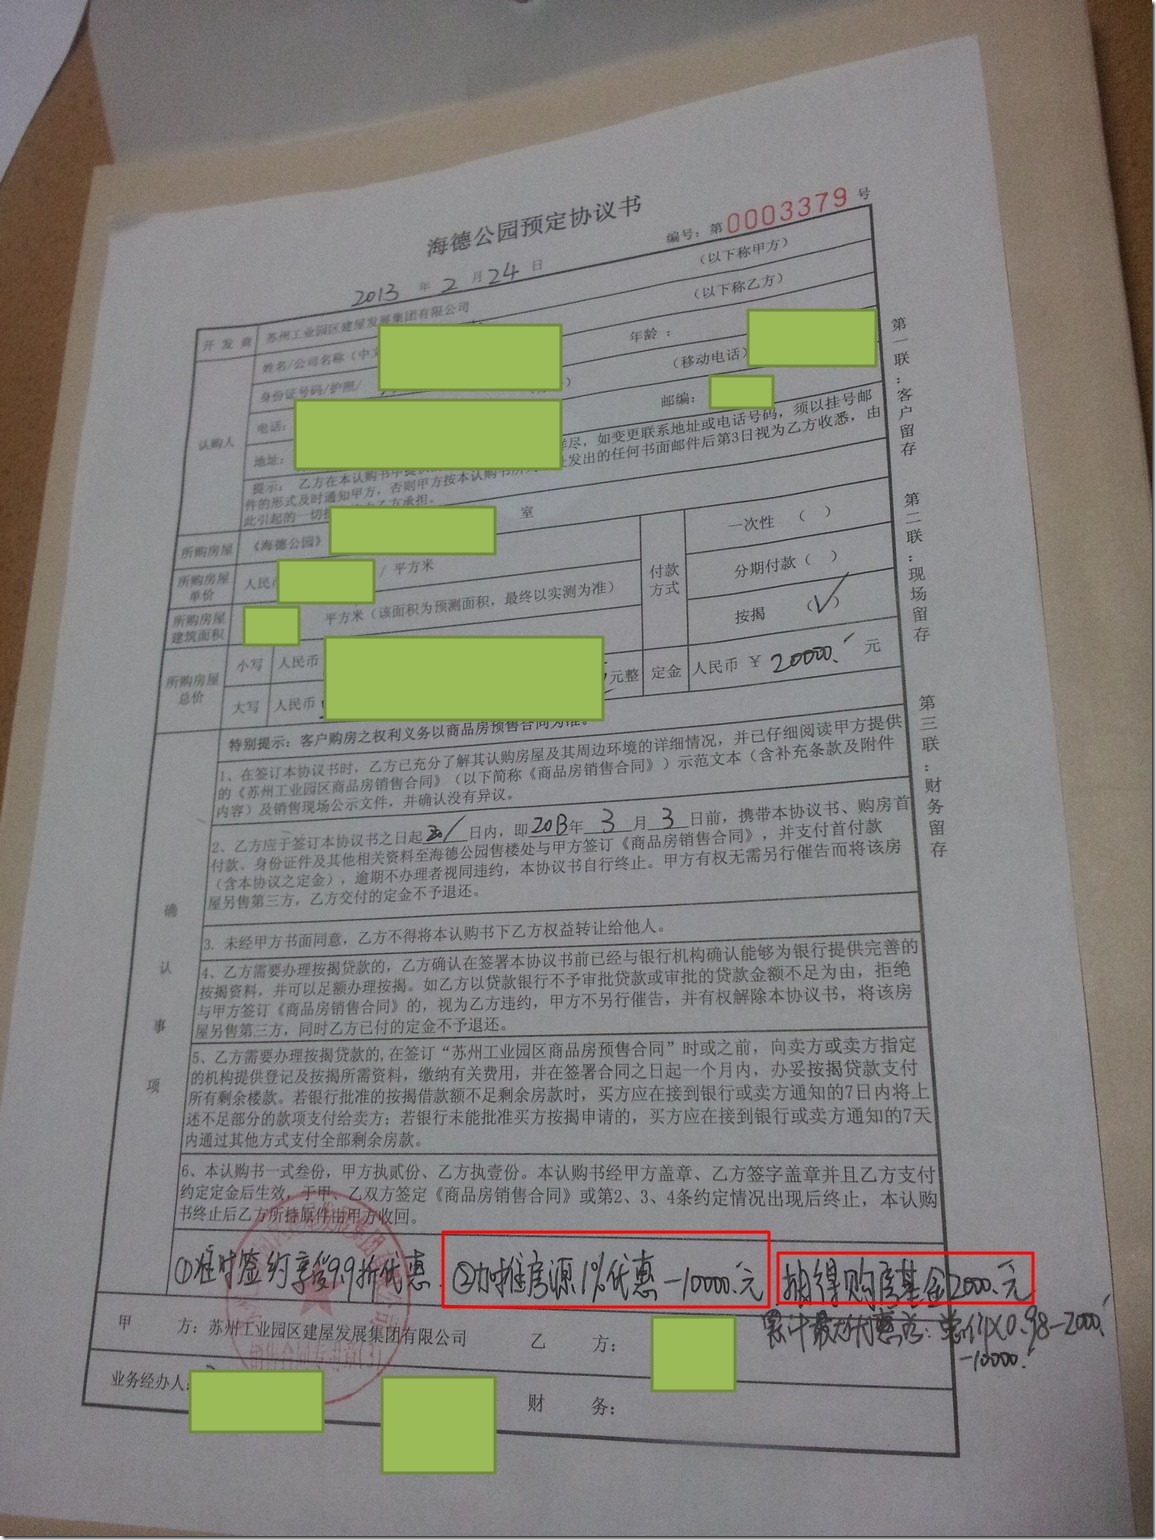 海德公园预定协议书
编号：第0003379号
2013年2月24日
开发商 苏州工业园区建屋发展集团有限公司 （以下称甲方）
认购人
姓名/公司名称（中文 （以下称乙方）
身份证号码/护照/ 年龄：
电话： （移动电话）
地址： 邮编：
提示： 乙方在本认购书中提供 详尽，如变更联系地址或电话号码，须以挂号邮
件的形式及时通知甲方，否则甲方按本认购书所 址发出的任何书面邮件后第3日视为乙方收悉，由
此引起的一切 乙方承担。
所购房屋 《海德公园》 室
所购房屋单价 人民 / 平方米
所购房屋建筑面积 平方米（该面积为预测面积，最终以实测为准）
付款方式
一次性 （ ）
分期付款（ ）
按揭 （√）
所购房屋总价
小写 人民币 元整
大写 人民币
定金 人民币 ￥ 20000. 元
特别提示：客户购房之权利义务以商品房预售合同为准。
确认事项
1、在签订本协议书时，乙方已充分了解其认购房屋及其周边环境的详细情况，并已仔细阅读甲方提供
的《苏州工业园区商品房销售合同》（以下简称《商品房销售合同》）示范文本（含补充条款及附件
内容）及销售现场公示文件，并确认没有异议。
2、乙方应于签订本协议书之日起 日内，即2013年3月3日前，携带本协议书、购房首
付款、身份证件及其他相关资料至海德公园售楼处与甲方签订《商品房销售合同》，并支付首付款
（含本协议之定金），逾期不办理者视同违约，本协议书自行终止。甲方有权无需另行催告而将该房
屋另售第三方，乙方交付的定金不予退还。
3. 未经甲方书面同意，乙方不得将本认购书下乙方权益转让给他人。
4、乙方需要办理按揭贷款的，乙方确认在签署本协议书前已经与银行机构确认能够为银行提供完善的
按揭资料，并可以足额办理按揭。如乙方以贷款银行不予审批贷款或审批的贷款金额不足为由，拒绝
与甲方签订《商品房销售合同》的，视为乙方违约，甲方不另行催告，并有权解除本协议书，将该房
屋另售第三方，同时乙方已付的定金不予退还。
5、乙方需要办理按揭贷款的,在签订“苏州工业园区商品房预售合同”时或之前，向卖方或卖方指定
的机构提供登记及按揭所需资料，缴纳有关费用，并在签署合同之日起一个月内，办妥按揭贷款支付
所有剩余楼款。若银行批准的按揭借款额不足剩余房款时，买方应在接到银行或卖方通知的7日内将上
述不足部分的款项支付给卖方；若银行未能批准买方按揭申请的，买方应在接到银行或卖方通知的7天
内通过其他方式支付全部剩余房款。
6、本认购书一式叁份，甲方执贰份、乙方执壹份。本认购书经甲方盖章、乙方签字盖章并且乙方支付
约定定金后生效，于甲、乙双方签定《商品房销售合同》或第2、3、4条约定情况出现后终止，本认购
书终止后乙方所持原件由甲方收回。
①准时签约享受9.9折优惠. ②加推房源1%优惠 -10000.元 购房基金2000.元
累计最大优惠为：总价×0.98-2000.
-10000.
甲 方：苏州工业园区建屋发展集团有限公司 乙 方：
业务经办人： 财 务：
第一联：客户留存
第二联：现场留存
第三联：财务留存